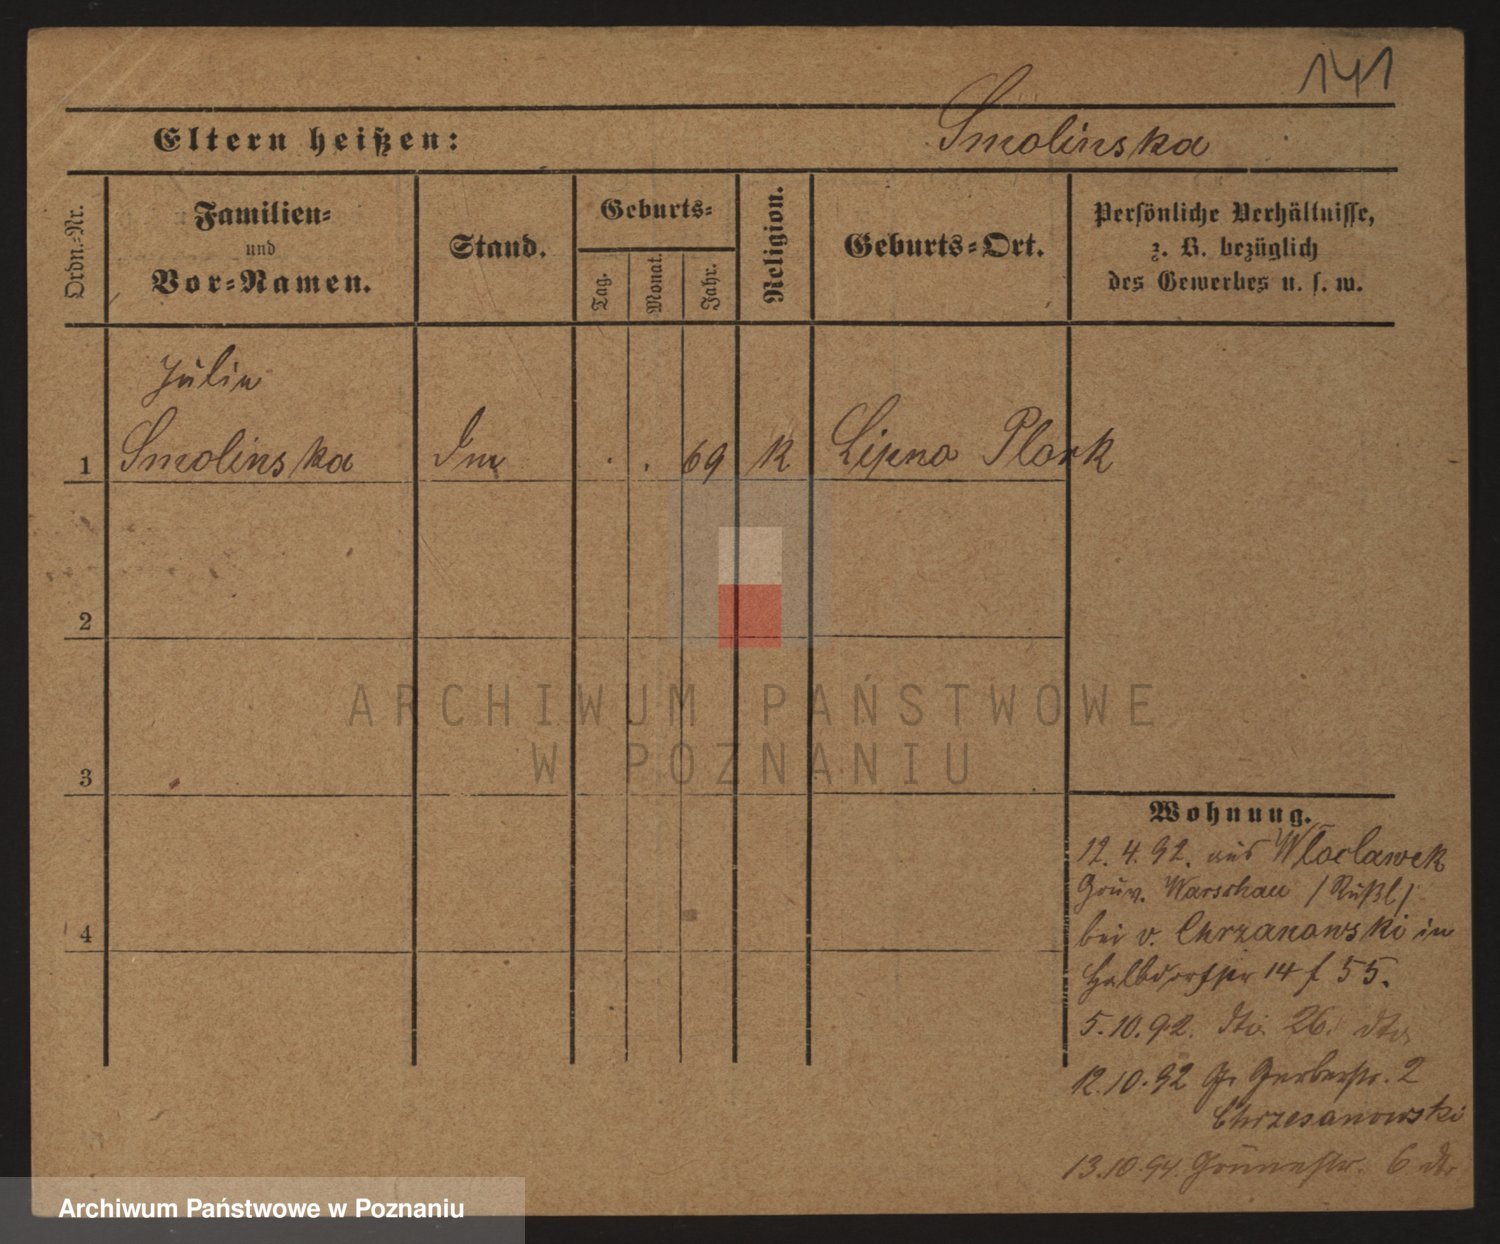 141
Eltern heißen: Smolinska
Ordn.-Nr.
Familien-
und
Vor-Namen.
Stand.
Geburts-
Tag.
Monat.
Jahr.
Religion.
Geburts-Ort.
Persönliche Verhältnisse,
z. B. bezüglich
des Gewerbes u. s. w.
Julia
1 Smolinska . . 69 K Lipno Plock
2
3
4
ARCHIWUM PAŃSTWOWE
W POZNANIU
Wohnung.
12.4.92. aus Wloclawek
Gouv. Warschau /Rußl/
bei v. Chrzanowski in
Halbdorfstr 14 f 55.
5.10.92. dto 26. dto
12.10.92 Gr Gerberstr. 2
Chrzesanowski
13.10.94. Grünestr. 6 dto
Archiwum Państwowe w Poznaniu